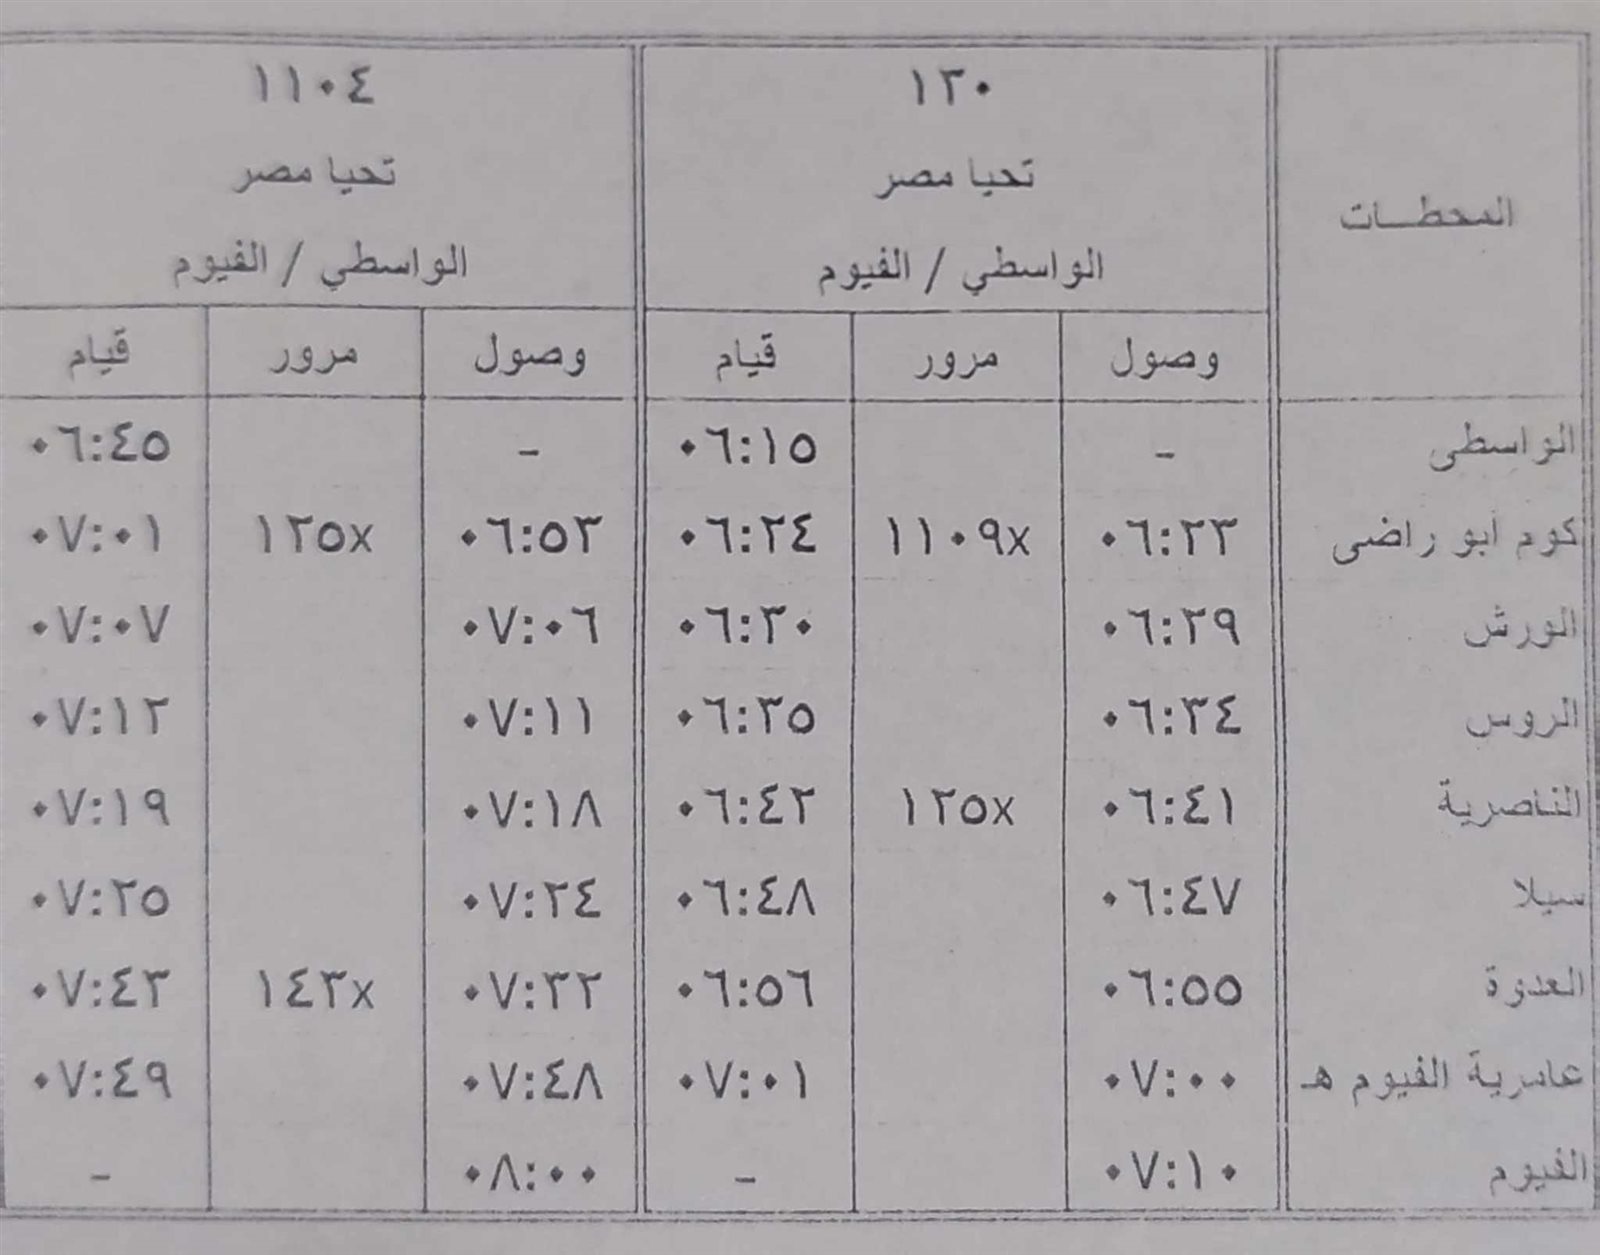 المحطـــات
١٣٠
تحيا مصر
الواسطي / الفيوم
١١٠٤
تحيا مصر
الواسطي / الفيوم
وصول مرور قيام وصول مرور قيام
الواسطى - ٠٦:١٥ - ٠٦:٤٥
كوم أبو راضى ٠٦:٢٣ ١١٠٩x ٠٦:٢٤ ٠٦:٥٣ ١٢٥x ٠٧:٠١
الورش ٠٦:٢٩ ٠٦:٣٠ ٠٧:٠٦ ٠٧:٠٧
الروس ٠٦:٣٤ ٠٦:٣٥ ٠٧:١١ ٠٧:١٢
الناصرية ٠٦:٤١ ١٢٥x ٠٦:٤٢ ٠٧:١٨ ٠٧:١٩
سيلا ٠٦:٤٧ ٠٦:٤٨ ٠٧:٢٤ ٠٧:٢٥
العدوة ٠٦:٥٥ ٠٦:٥٦ ٠٧:٣٢ ١٤٣x ٠٧:٤٣
عامرية الفيوم هـ ٠٧:٠٠ ٠٧:٠١ ٠٧:٤٨ ٠٧:٤٩
الفيوم ٠٧:١٠ - ٠٨:٠٠ -